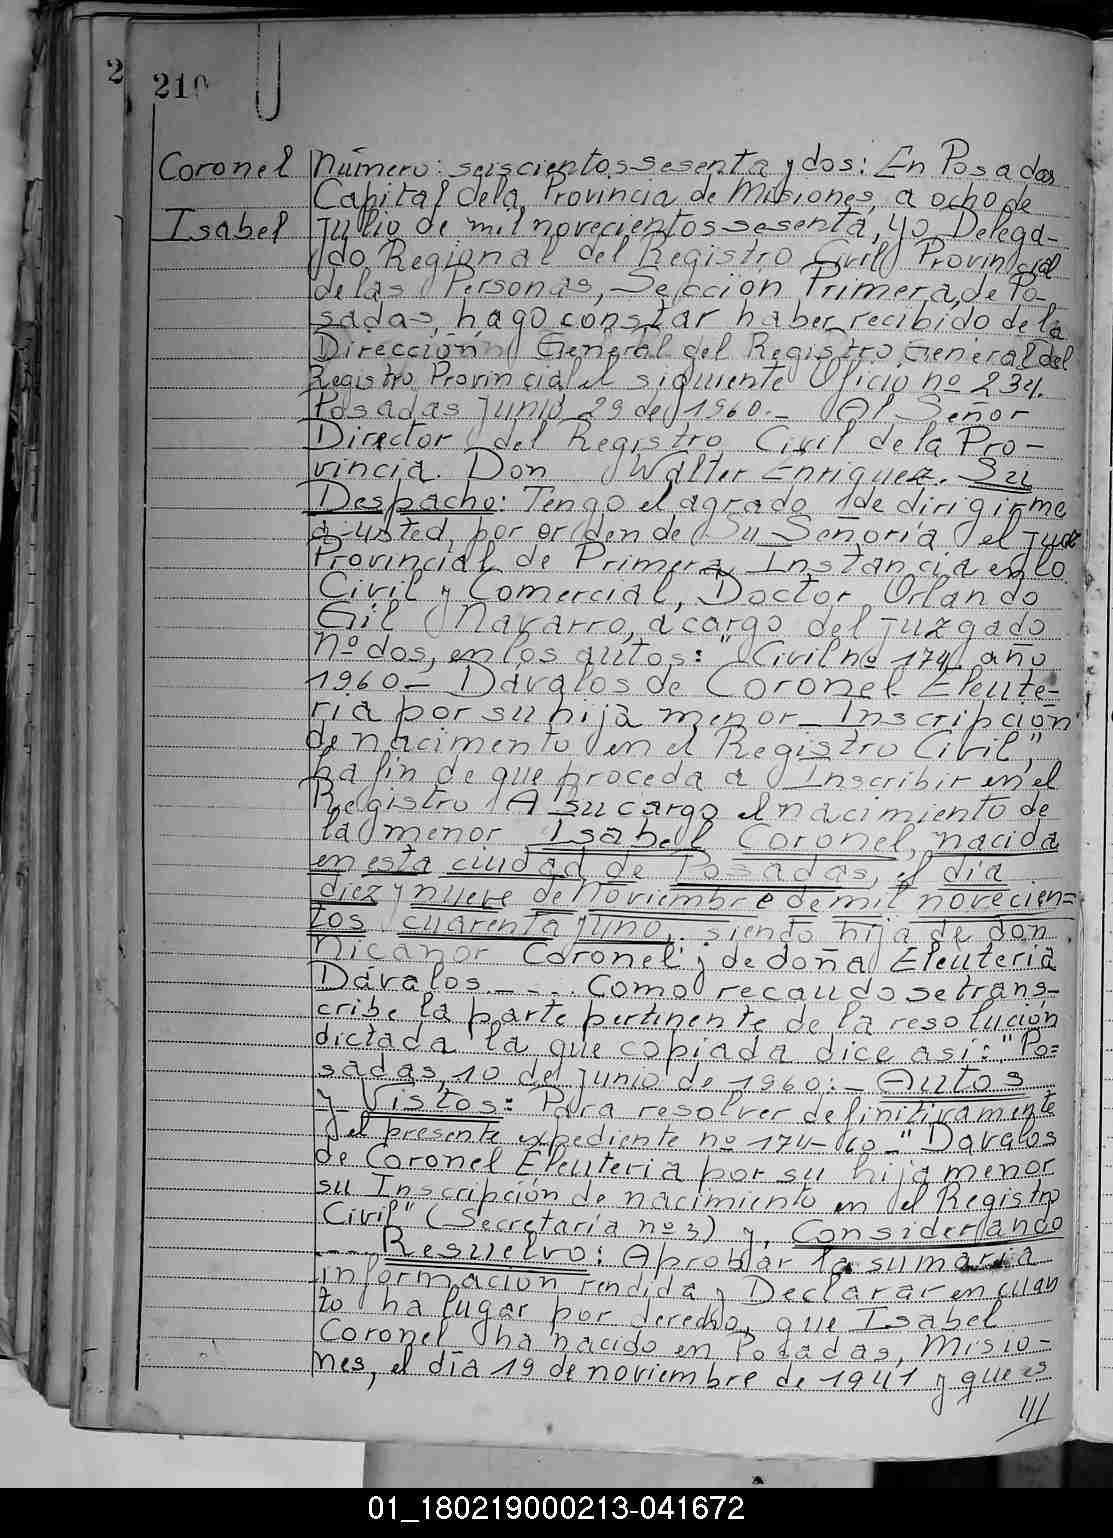 2
210
Coronel
Isabel
Número: seiscientos sesenta y dos: En Posadas
Capital de la Provincia de Misiones, a ocho de
julio de mil novecientos sesenta, yo Delega-
do Regional del Registro Civil Provincial
de las Personas, Sección Primera, de Po-
sadas, hago constar haber recibido de la
Dirección General del Registro General del
Registro Provincial el siguiente Oficio nº 234.
Posadas Junio 29 de 1960.- Al Señor
Director del Registro Civil de la Pro-
vincia. Don Walter Enriquez. Su
Despacho: Tengo el agrado de dirigirme
a usted, por orden de Su Señoría el Juez
Provincial de Primera Instancia en lo
Civil y Comercial, Doctor Orlando
Gil Navarro, a cargo del juzgado
nº dos, en los autos: "Civil nº 174 año
1960- Davalos de Coronel Eleute-
ria por su hija menor Inscripción
de nacimento en el Registro Civil",
ha fin de que proceda a Inscribir en el
Registro A su cargo el nacimiento de
la menor Isabel Coronel, nacida
en esta ciudad de Posadas, el día
diez y nueve de noviembre de mil novecien=
tos cuarenta y uno, siendo hija de don
Nicanor Coronel y de doña Eleuteria
Dávalos.---. Como recaudo se trans-
cribe la parte pertinente de la resolución
dictada la que copiada dice así: "Po=
sadas, 10 de Junio de 1960:- Autos
y Vistos: Para resolver definitivamente
el presente expediente nº 174-60-"Davalos
de Coronel Eleuteria por su hija menor
su Inscripción de nacimiento en el Registro
Civil" (Secretaría nº 3) y, Considerando
---- Resuelvo: Aprobar la sumaria
información rendida y Declarar en cuan
to ha lugar por derecho, que Isabel
Coronel ha nacido en Posadas, Misio-
nes, el día 19 de noviembre de 1941 y que es
///
01_180219000213-041672